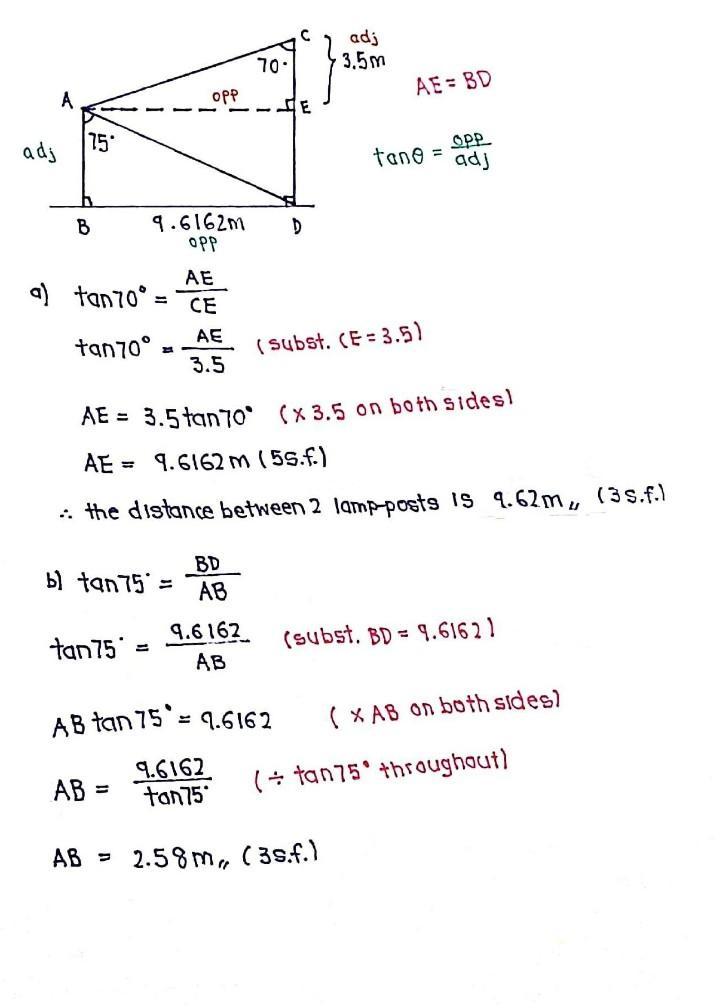 C adj
70° 3.5m
AE = BD
A opp E
adj 75° tanθ = opp/adj
B 9.6162m D
opp
a) tan70° = AE/CE
tan70° = AE/3.5 (subst. CE = 3.5)
AE = 3.5tan70° (x 3.5 on both sides)
AE = 9.6162m (5s.f.)
∴ the distance between 2 lamp-posts is 9.62m,, (3s.f.)
b) tan75° = BD/AB
tan75° = 9.6162/AB (subst. BD = 9.6162)
AB tan75° = 9.6162 (x AB on both sides)
AB = 9.6162/tan75° (÷ tan75° throughout)
AB = 2.58m,, (3s.f.)